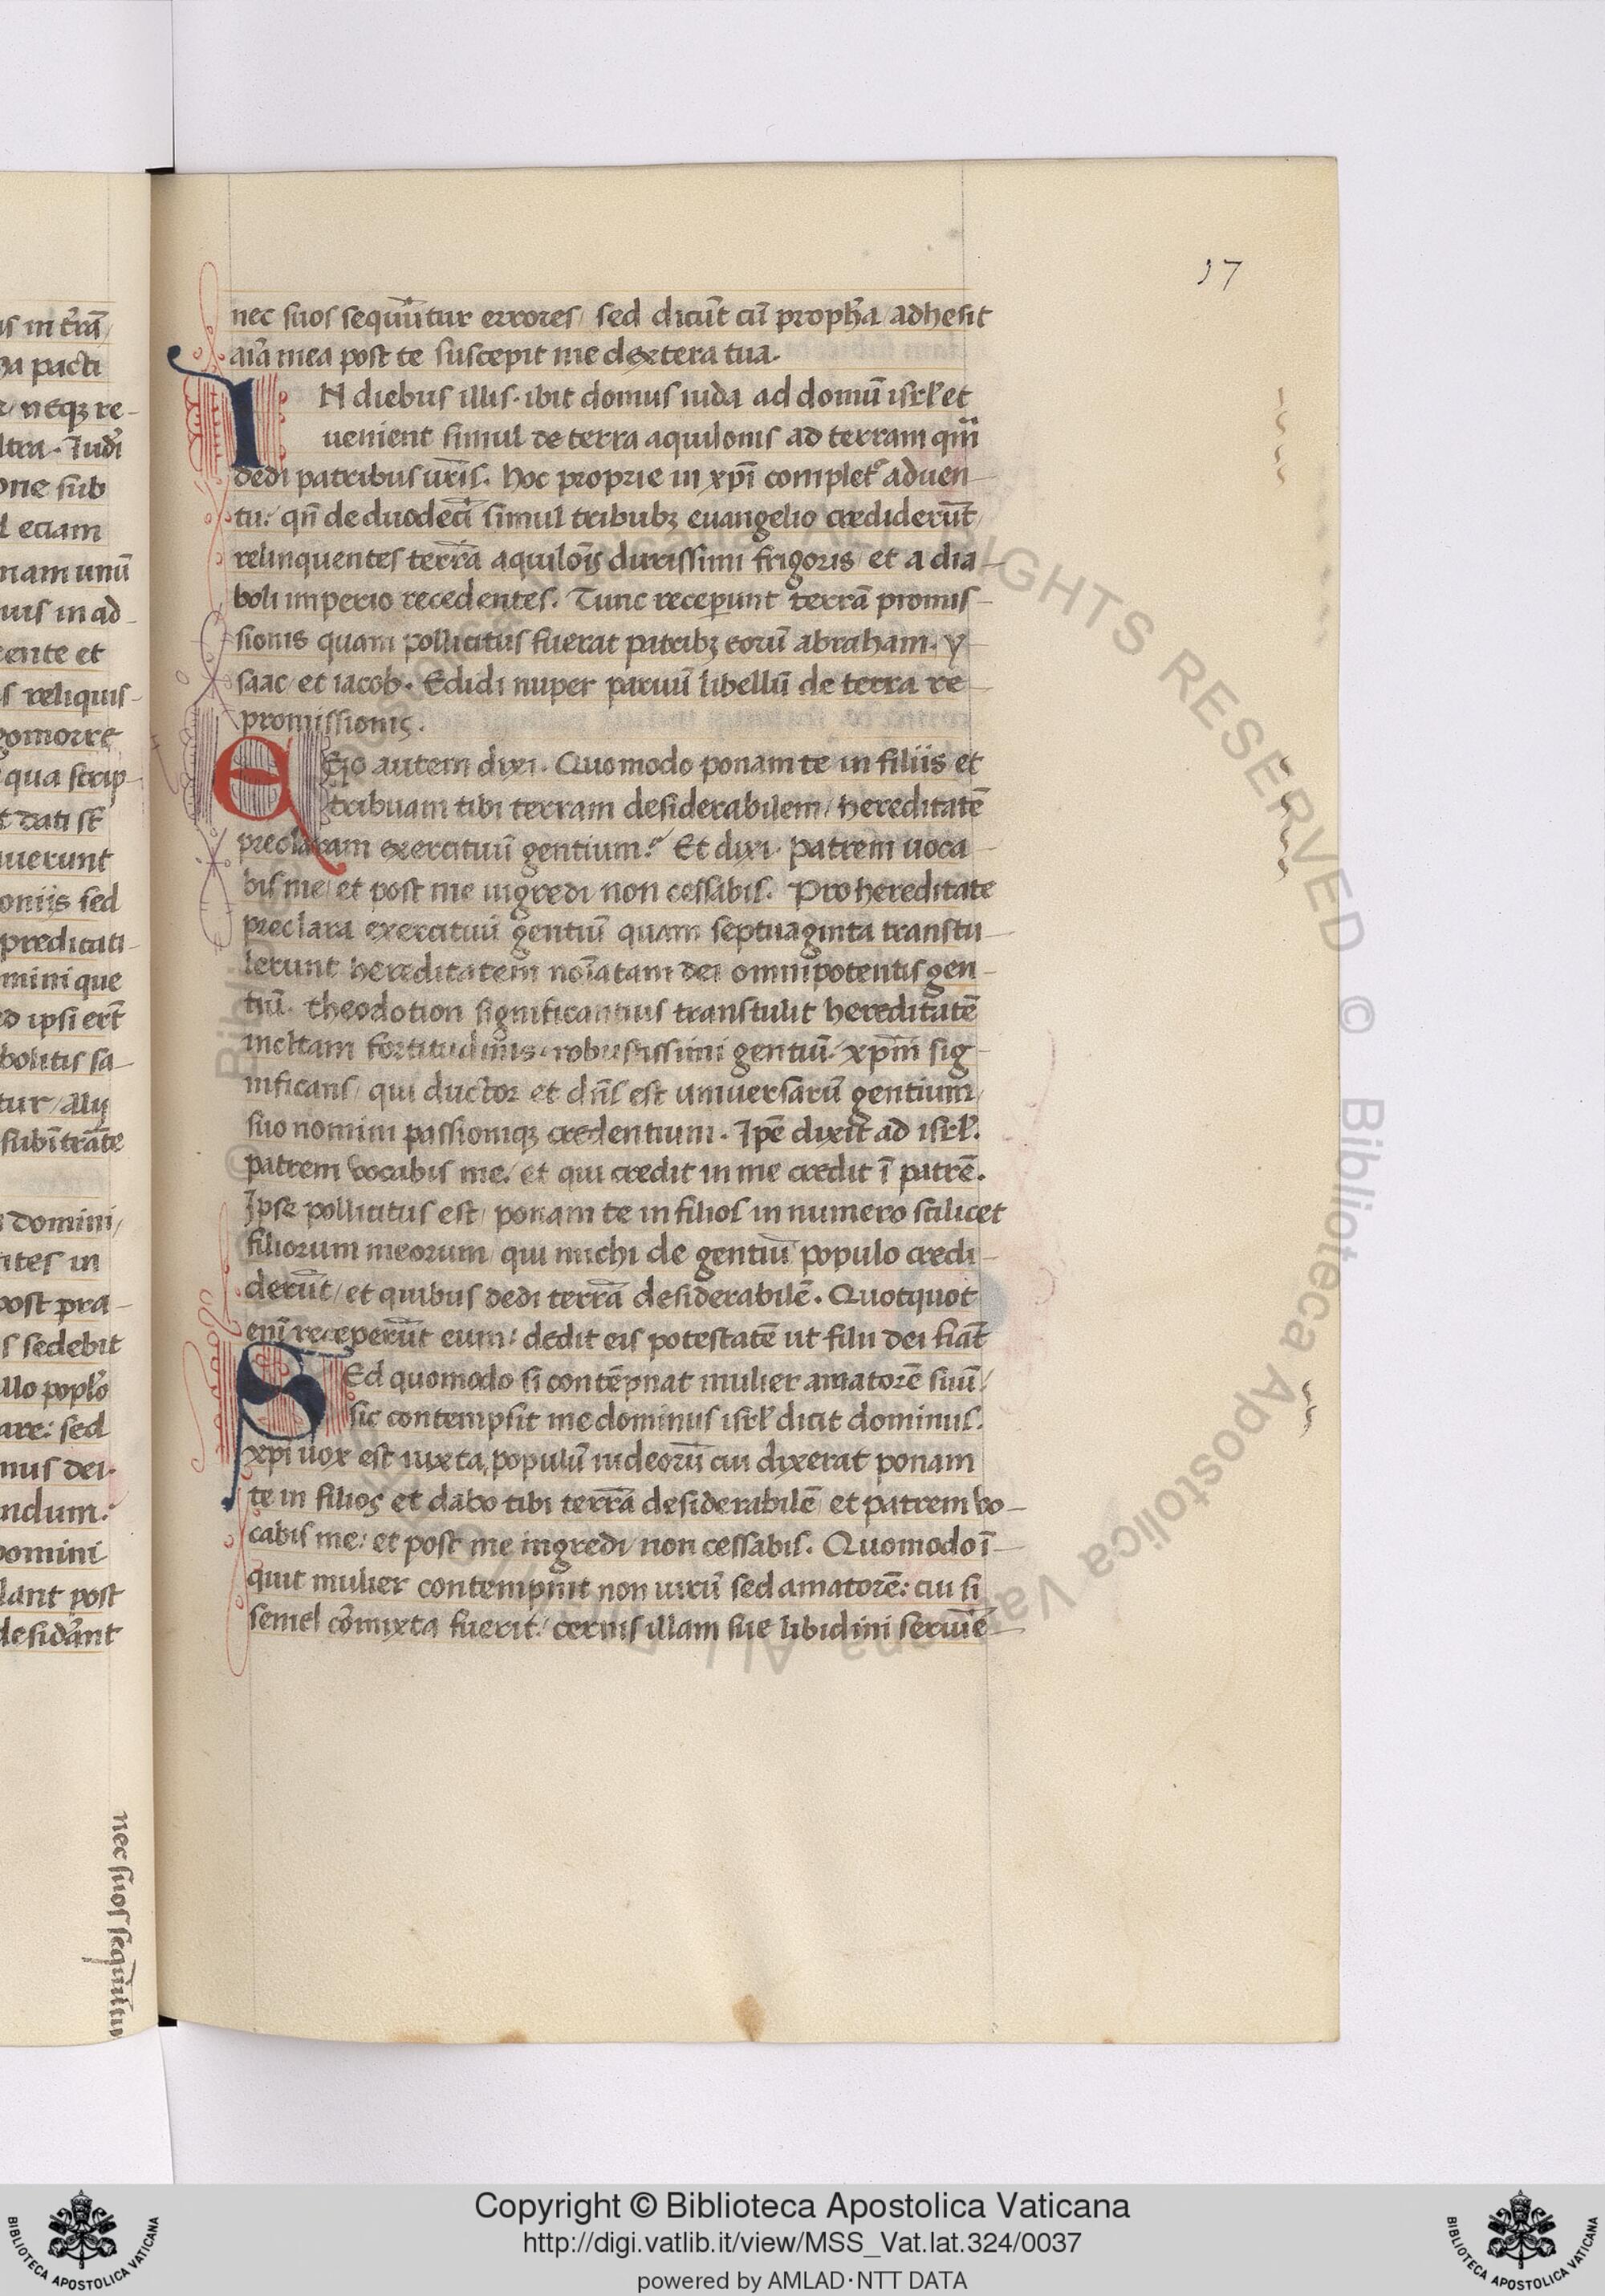 17
nec suos sequūtur errores / sed dicūt cū prophā / adhesit
aīa mea post te suscepit me dextera tua.
IN diebus illis. ibit domus iuda ad domū isrl̄ et
uenient simul de terra aquilonis ad terram qm̄
dedi patribus ur̄is. Hoc proprie in xp̄i complet᷑ aduen-
tu: qn̄ de duodecī simul tribubꝫ euangelio crediderūt /
relinquentes terrā aquilōis durissimi frigoris / et a dia-
boli imperio recedentes. Tunc receperunt terrā promis-
sionis quam pollicitus fuerat patribꝫ eorū abraham. y-
saac / et iacob. Edidi nuper paruū libellū de terra re-
promissionis.
Ego autem dixi. Quomodo ponam te in filiis et
tribuam tibi terram desiderabilem / hereditatē
preclaram exercituū gentium? Et dixi. patrem uoca-
bis me / et post me ingredi non cessabis. Pro hereditate
preclara exercituū gentiū quam septuaginta transtu-
lerunt hereditatem noīatam dei omnipotentis gen-
tiū. theodotion significantius transtulit hereditatē
incltam fortitudinis robustissimi gentiū / xp̄m sig-
nificans / qui ductor et dn̄s est uniuersarū gentium /
suo nomini passioniqꝫ credentium. Ip̄e dixit ad isrl̄.
patrem vocabis me / et qui credit in me credit ī patrē.
Ipse pollicitus est / ponam te in filios in numero scilicet
filiorum meorum / qui michi de gentiū populo credi-
derūt / et quibus dedi terrā desiderabilē. Quotquot
enī receperūt eum: dedit eis potestatē ut filii dei fiāt
Sed quomodo si contēpnat mulier amatorē suū /
sic contempsit me dominus isrl̄ dicit dominus.
xp̄i uox est iuxta populū iudeorū cui dixerat ponam
te in filios et dabo tibi terrā desiderabilē / et patrem vo-
cabis me: et post me ingredi / non cessabis. Quomodo ī-
quit mulier contempnit non uirū sed amatorē: cui si
semel cōmixta fuerit / cernis illam sue libidini seruīe
nec suos sequūtur
Copyright © Biblioteca Apostolica Vaticana
http://digi.vatlib.it/view/MSS_Vat.lat.324/0037
powered by AMLAD·NTT DATA
BIBLIOTECA APOSTOLICA VATICANA
BIBLIOTECA APOSTOLICA VATICANA